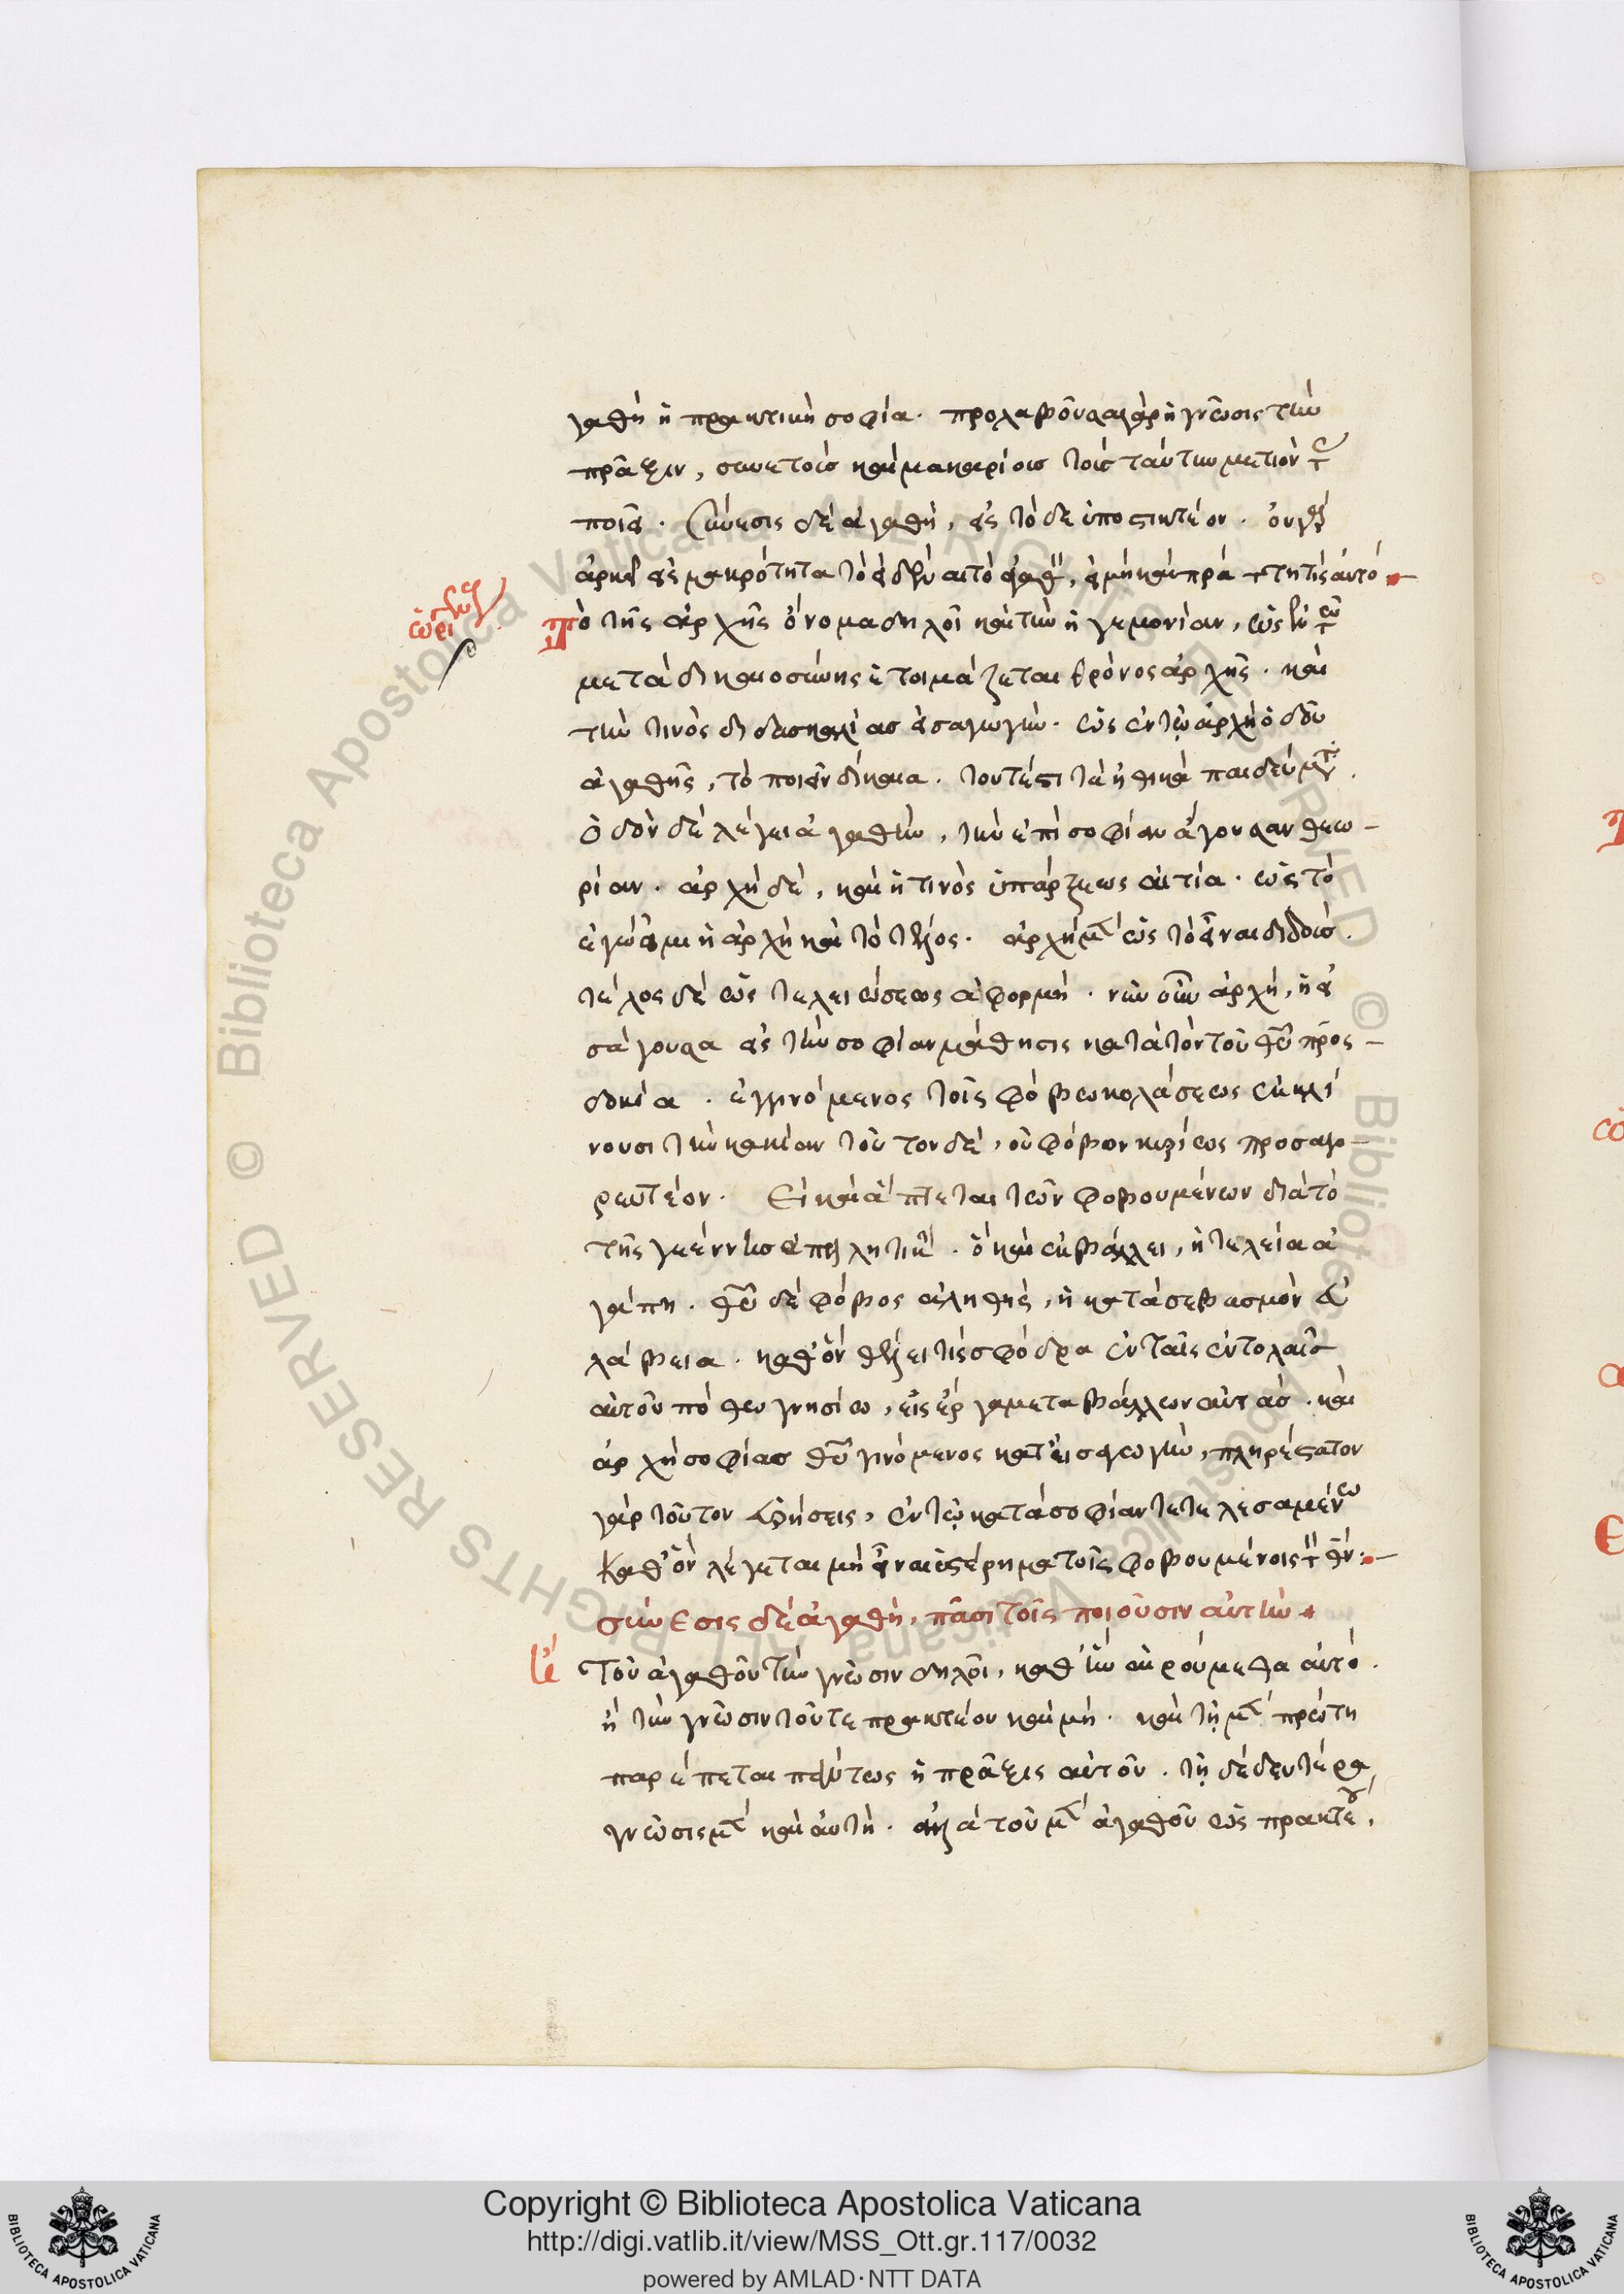 γαθὴ ἡ πρακτικὴ σοφία. προλαβοῦσα γὰρ ἡ γνῶσις τὴν
πρᾶξιν, συνετοῖς καὶ μακαρίοις τοῖς ταύτην μετιοῦσι
ποιεῖ. Σύνεσις δὲ ἀγαθὴ, εἰς τόδε ὑποστικτέον. οὐ γὰρ
ἀρκεῖ εἰς μακρότητα τὸ εἰδέναι τὸ ἀγαθὸν, εἰ μὴ καὶ πράττῃ τίς αὐτό
ὠριγένους
Τὸ τῆς ἀρχῆς ὄνομα δηλοῖ καὶ τὴν ἡγεμονίαν, ὡς ἐν τῷ
μετὰ δικαιοσύνης ἑτοιμάζεται θρόνος ἀρχῆς. καὶ
τὴν τινὸς διδασκαλίας εἰσαγωγήν. ὡς ἐν τῷ ἀρχὴ ὁδοῦ
ἀγαθῆς, τὸ ποιεῖν δίκαια. τουτέστι τὰ ἠθικὰ παιδεύματα.
ὁδὸν δὲ λέγει ἀγαθὴν, τὴν ἐπὶ σοφίαν ἄγουσαν θεω-
ρίαν. ἀρχὴ δὲ, καὶ ἥ τινὸς ὑπάρξεως αἰτία. ὡς τὸ
ἐγώ εἰμι ἡ ἀρχὴ καὶ τὸ τέλος. ἀρχὴ μὲν ὡς τὸ εἶναι διδούς.
τέλος δὲ ὡς τελειώσεως ἀφορμή. νῦν οὖν ἀρχὴ, ἡ εἰ
σάγουσα εἰς τὴν σοφίαν μάθησις κατὰ τὸν τοῦ θεοῦ πρός-
δοκία. ἐγγινόμενος τοῖς φόβω κολάσεως ἐκκλί
νουσι τὴν κακίαν τοῦτον δὲ, οὐ φόβον κυρίως προσαγο-
ρευτέον. Εἰ καὶ ἅπτεται τῶν φοβουμένων διὰ τὸ
τῆς γεέννης ἀπειλητικόν. ὃ καὶ ἐκβάλλει, ἡ τελεία ἀ
γάπη. θεοῦ δὲ φόβος ἀληθής, ἡ κατὰ σεβασμὸν εὐ
λάβεια. καθ' ὃν θέλει τίς σφόδρα ἐν ταῖς ἐντολαῖς
αὐτοῦ πόθω γνησίω, εἰς ἔργα μεταβάλλων αὐτάς. καὶ
ἀρχὴ σοφίας θεοῦ γινόμενος κατ' εἰσαγωγὴν, πληρέστατον
γὰρ τοῦτον εὑρήσεις, ἐν τῷ κατὰ σοφίαν τετελεσαμένω
καθ' ὃν λέγεται μὴ εἶναι ὑστέρημα τοῖς φοβουμένοις τὸν θν:
σύνεσις δὲ ἀγαθὴ, πᾶσι τοῖς ποιοῦσιν αὐτήν
Τοῦ ἀγαθοῦ τὴν γνῶσιν δηλοῖ, καθ' ἣν αἱρούμεθα αὐτό.
ἢ τὴν γνῶσιν τοῦ τε πρακτέου καὶ μή. καὶ τῇ μὲν πρώτῃ
παρέπεται πάντως ἡ πρᾶξις αὐτοῦ. τῇ δὲ δευτέρα
γνῶσις μὲν καὶ αὐτή. ἀλλὰ τοῦ μὲν ἀγαθοῦ ὡς πρακτέου,
Copyright © Biblioteca Apostolica Vaticana
http://digi.vatlib.it/view/MSS_Ott.gr.117/0032
powered by AMLAD·NTT DATA